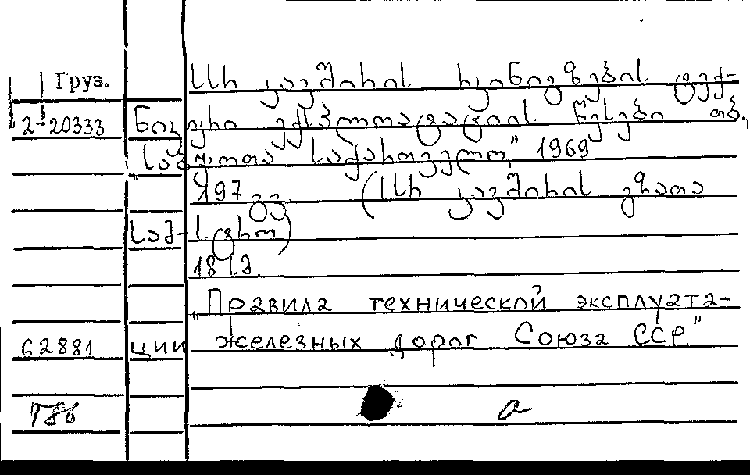 Груз.
სსრ კავშირის რკინიგზების ტექ-
2-20333 ნიკური ექსპლოატაციის წესები თბ.
"საბჭოთა საქართველო", 1969
197 გვ (სსრ კავშირის გზათა
სამ-ს ცხო)
18 კ.
"Правила технической эксплуата-
62881 ции железных дорог Союза ССР"
а